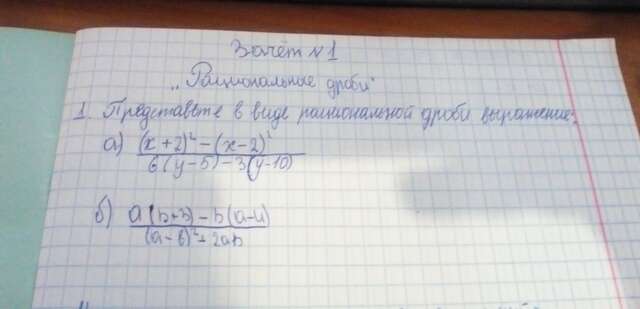 Зачёт №1
„Рациональные дроби"
1. Представьте в виде рациональной дроби выражение:
а) (x+2)² - (x-2)²
6(y-5) - 3(y-10)
б) a(b+3) - b(a-4)
(a-b)² + 2ab